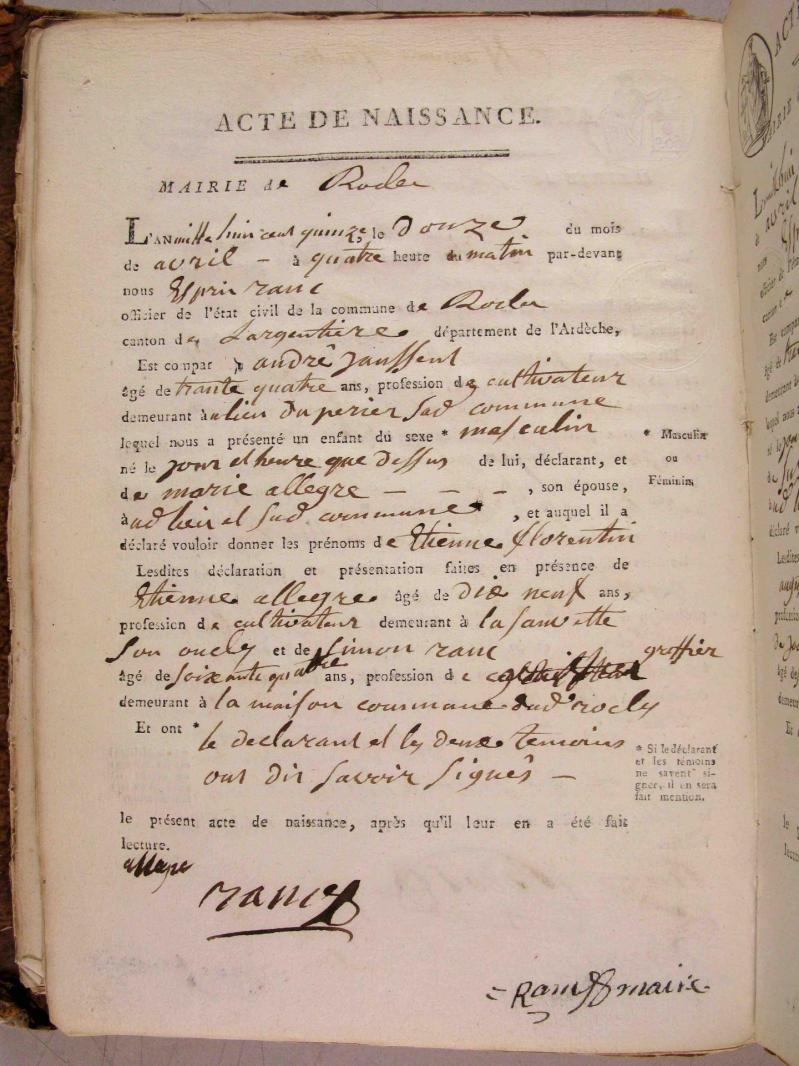 ACTE DE NAISSANCE.
MAIRIE de Rocles
L'AN mille huit cent quinze, le douze du mois
de avril - à quatre heure du matin par-devant
nous Esprit ranc
officier de l'état civil de la commune de Rocles
canton de Largentiere département de l'Ardèche,
Est compar andré jaussent
âgé de trante quatre ans, profession de cultivateur
demeurant à lieu du perier sud commune
lequel nous a présenté un enfant du sexe * masculin
* Masculin
ou
Féminin
né le jour et heure que dessus de lui, déclarant, et
de marie allegre - - - , son épouse,
à ud lieu et sud commune , et auquel il a
déclaré vouloir donner les prénoms de Etienne florentin
Lesdites déclaration et présentation faites en présence de
Etienne allegre âgé de dix neuf ans,
profession de cultivateur demeurant à la sauvette
son oncle et de simon ranc
âgé de soixante quatre ans, profession de greffier
demeurant à la maison commune dud rocles
Et ont * le declarant et les deux temoins
ont dit savoir signés -
* Si le déclarant
et les témoins
ne savent si-
gner, il en sera
fait mention.
le présent acte de naissance, après qu'il leur en a été fait
lecture.
allegre
ranc
= Ranc maire